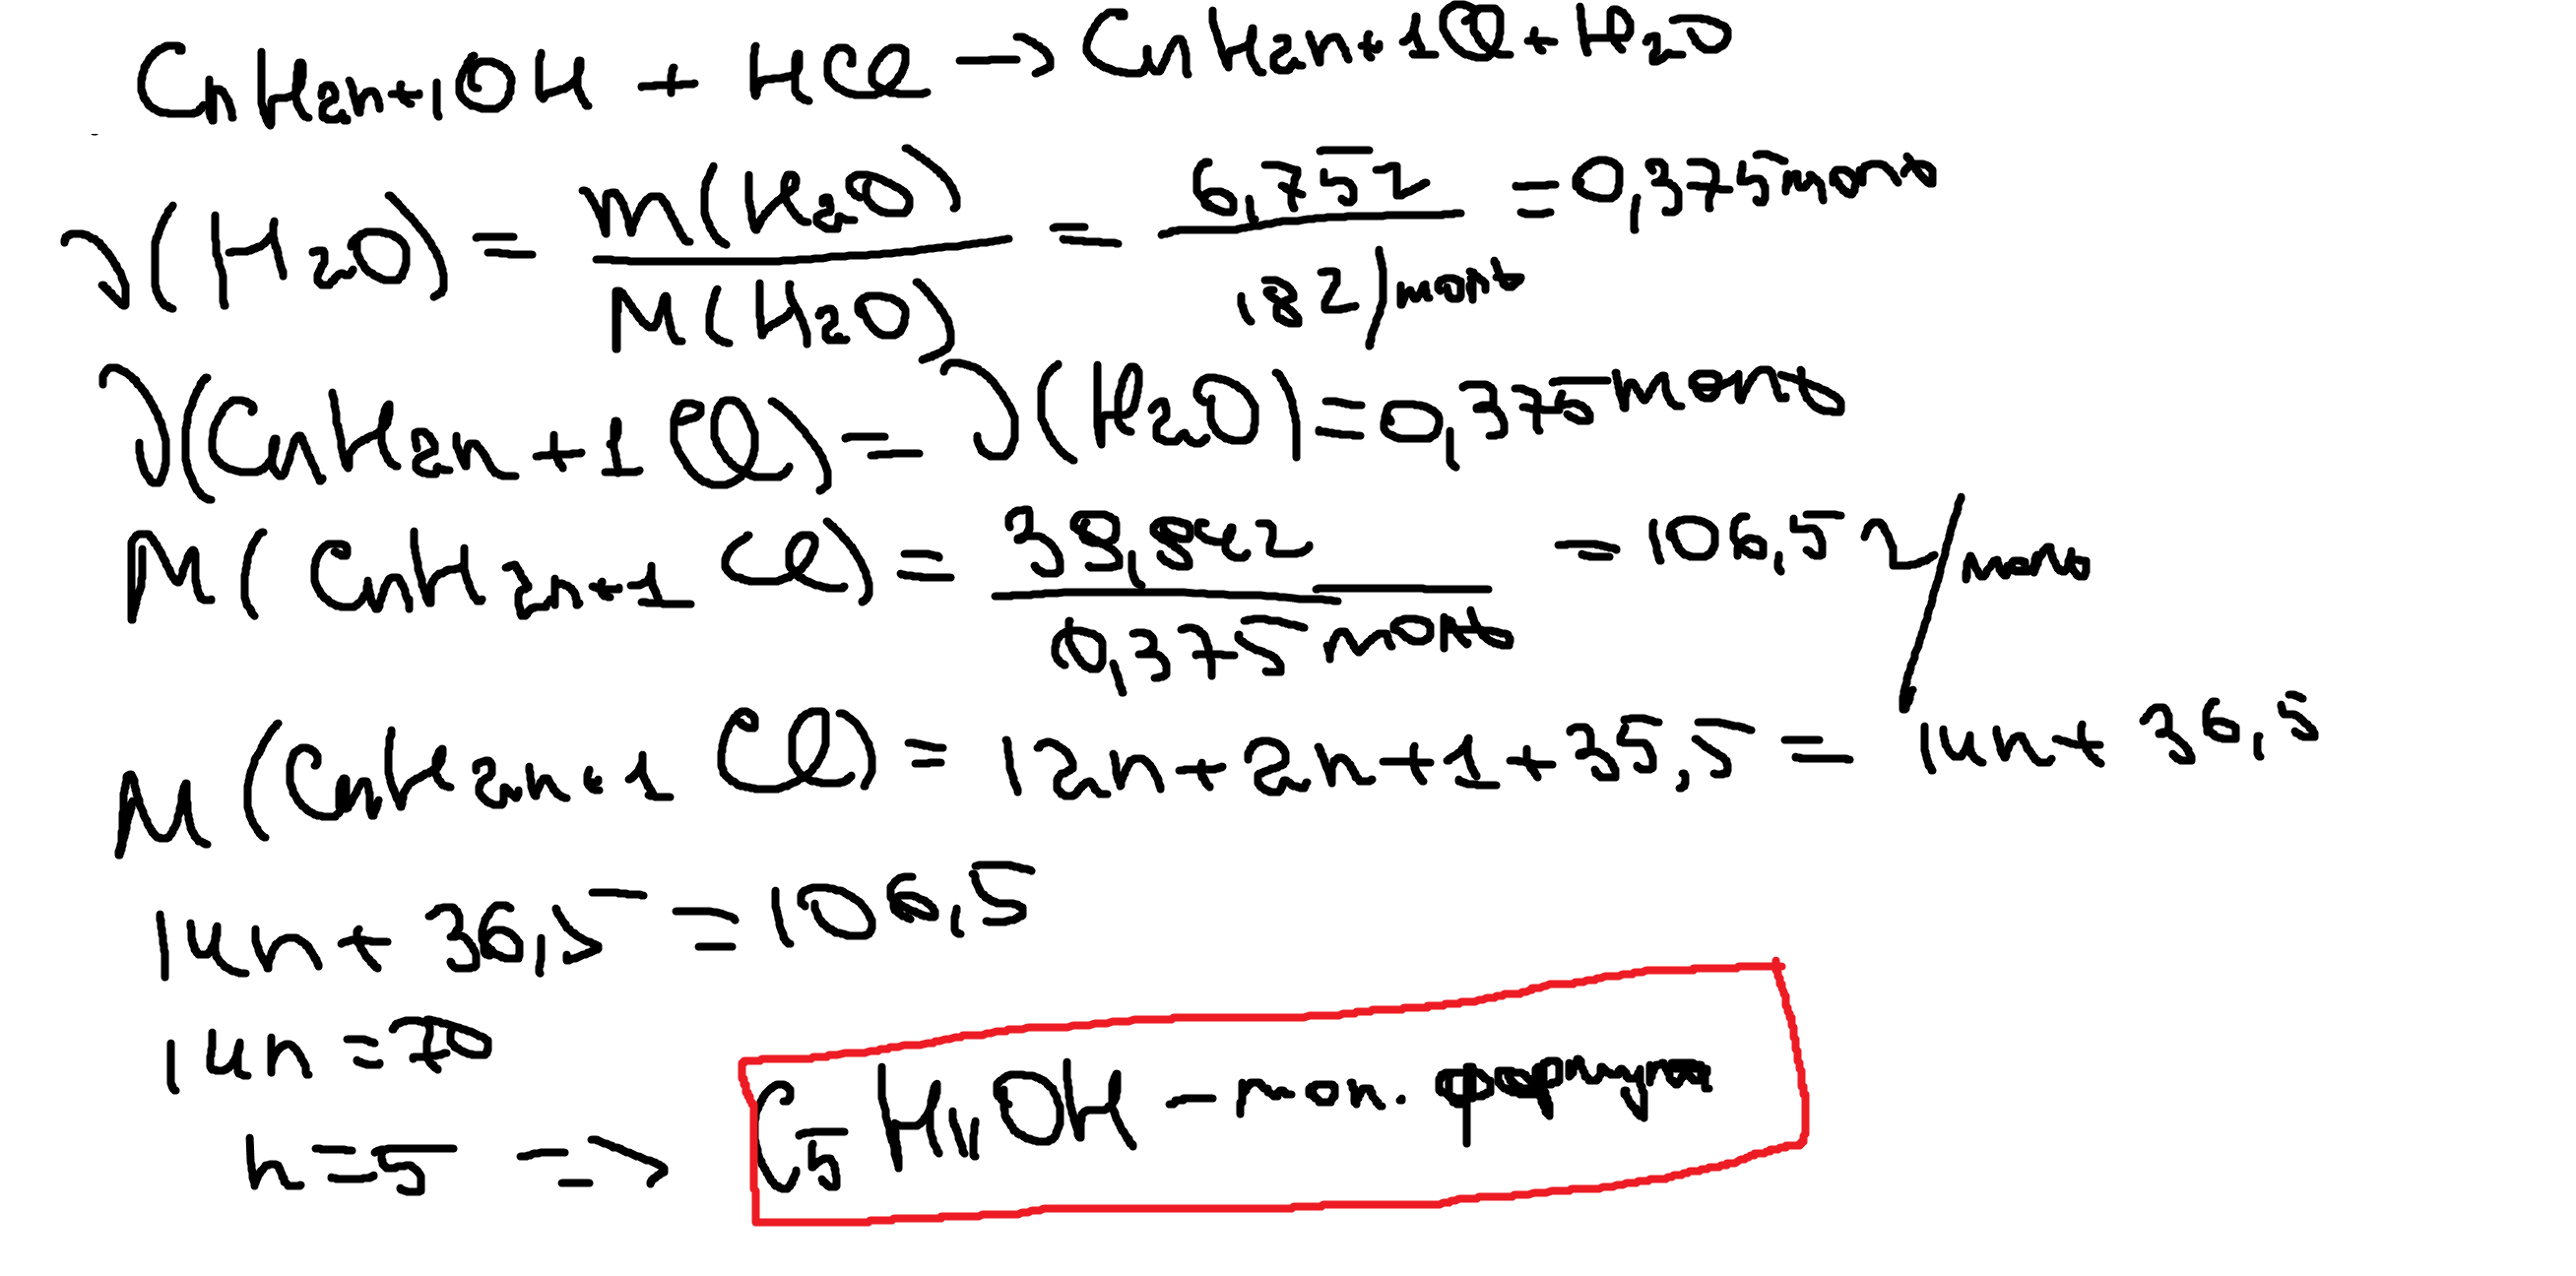 CnH2n+1OH + HCl → CnH2n+1Cl + H2O
ν(H2O) = m(H2O) / M(H2O) = 6,75г / 18г/моль = 0,375моль
ν(CnH2n+1Cl) = ν(H2O) = 0,375моль
M(CnH2n+1Cl) = 39,94г / 0,375моль = 106,5г/моль
M(CnH2n+1Cl) = 12n+2n+1+35,5 = 14n+36,5
14n+36,5 = 106,5
14n = 70
n = 5 => C5H11OH - мол. формула